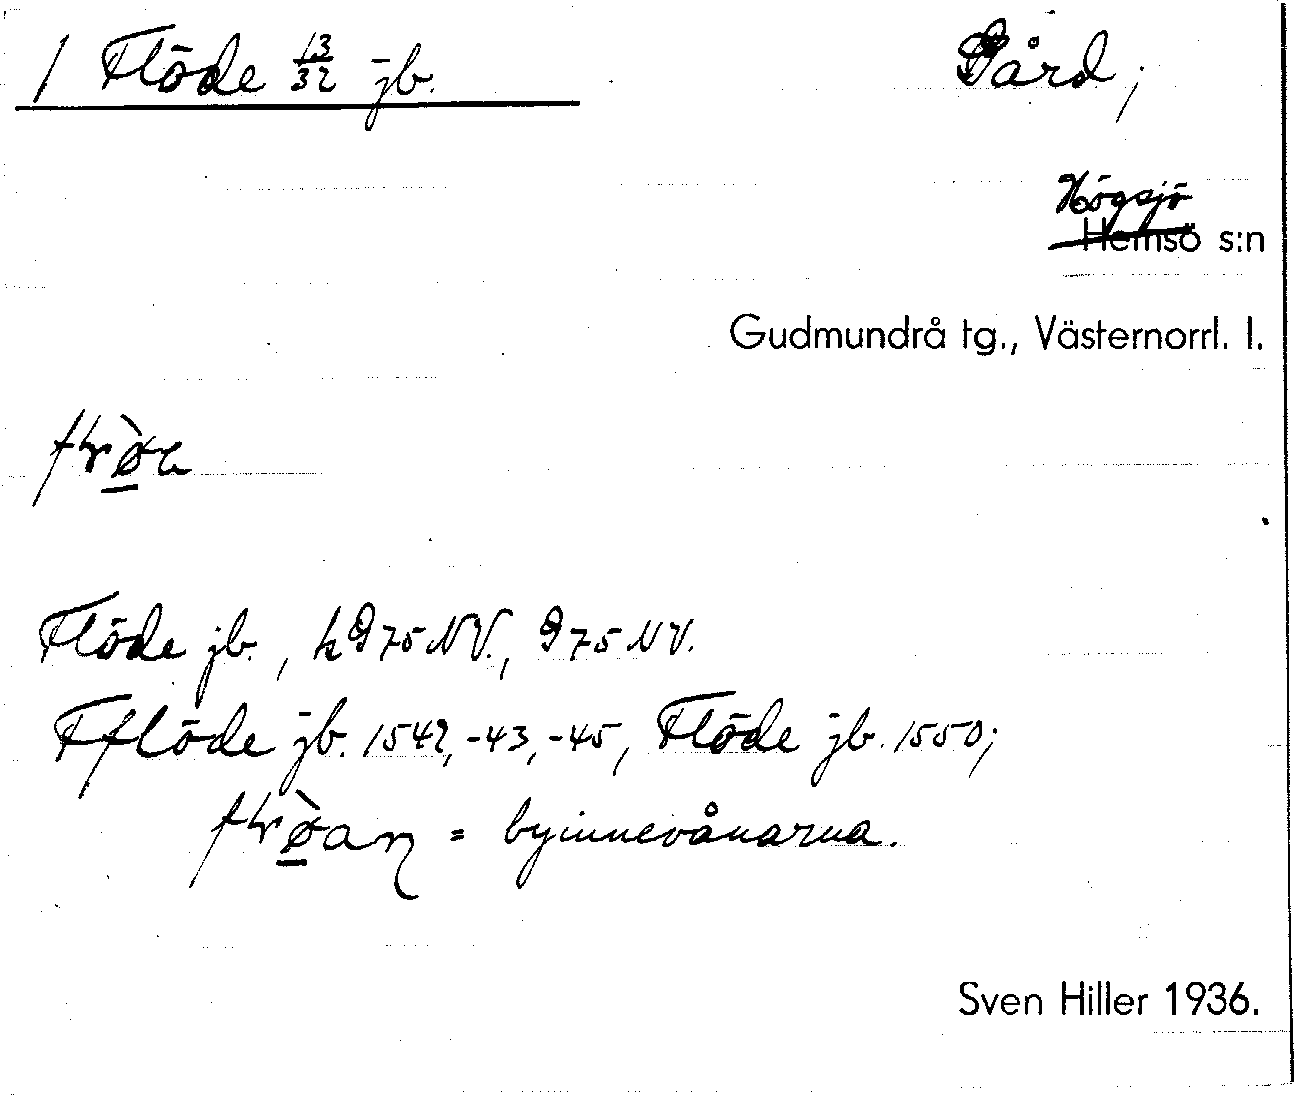 1 Flöde 13/32 jb. Gård;
Högsjö
Hemsö s:n
Gudmundrå tg., Västernorrl. l.
Flöde jb., k975NV., 975NV.
Fflöde jb. 1542, -43, -45, Flöde jb. 1550;
= byinnevånarna.
Sven Hiller 1936.